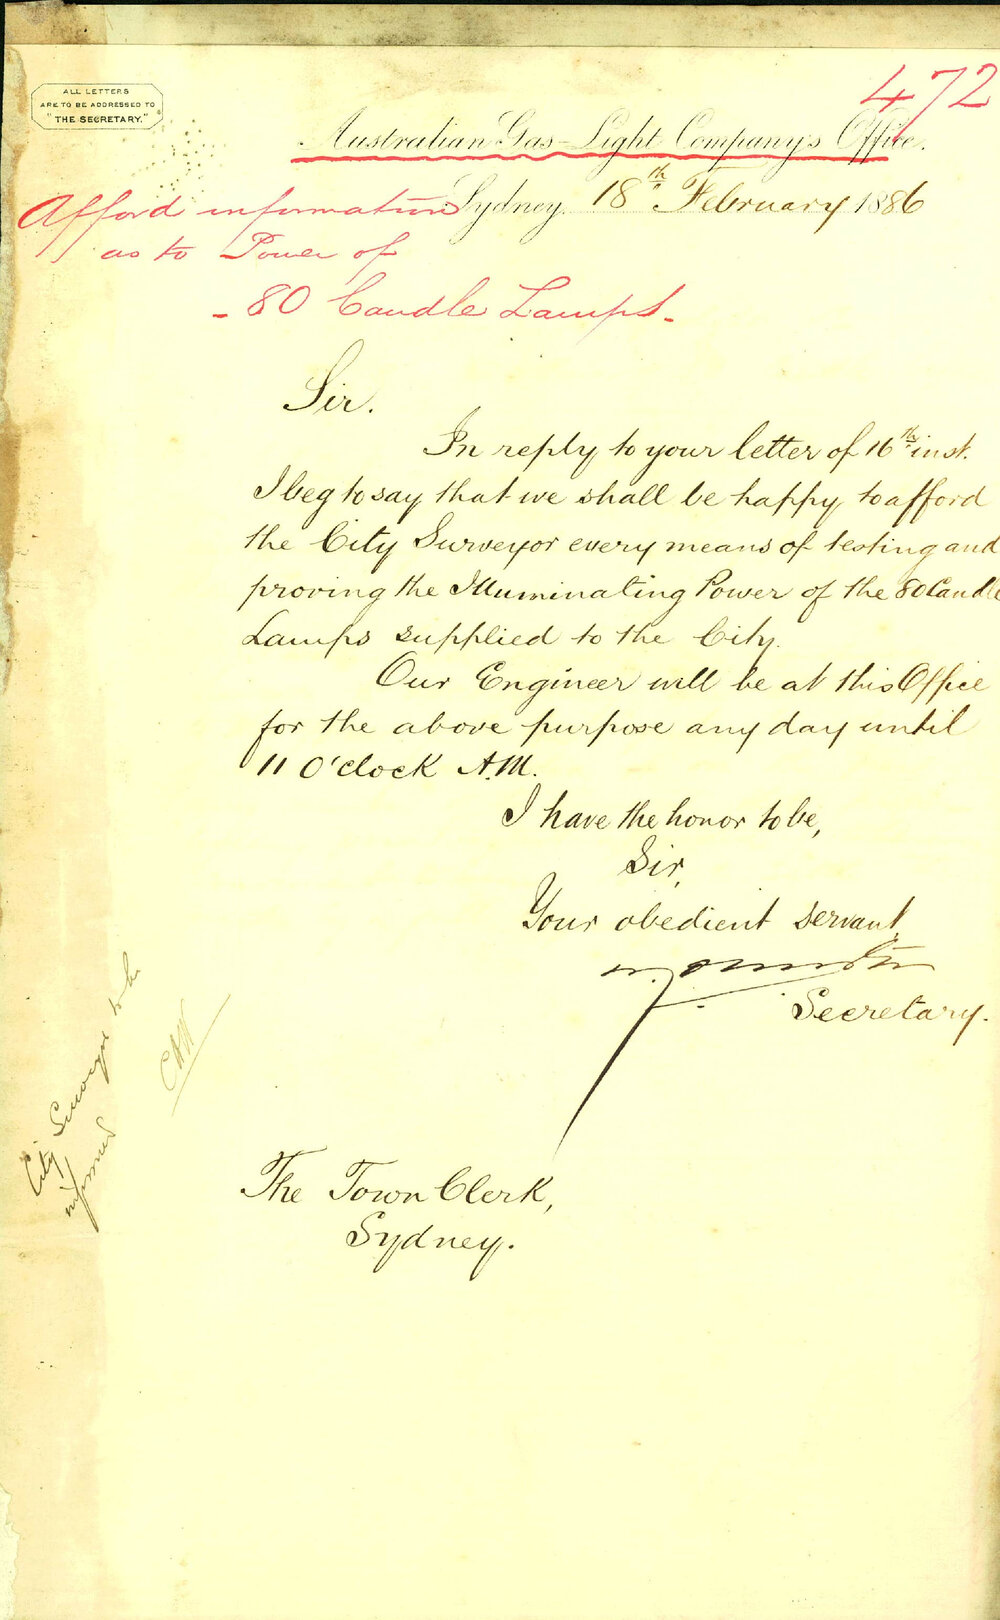 472
ALL LETTERS
ARE TO BE ADDRESSED TO
"THE SECRETARY."
Australian Gas-Light Company's Office.
Sydney. 18th February 1886
Afford information
as to Power of
- 80 Candle Lamps -
Sir.
In reply to your letter of 16th inst.
I beg to say that we shall be happy to afford
the City Surveyor every means of testing and
proving the Illuminating Power of the 80 Candle
Lamps supplied to the City.
Our Engineer will be at this Office
for the above purpose any day until
11 O'clock A.M.
I have the honor to be,
Sir,
Your obedient servant
Secretary.
City Surveyor to be
informed
The Town Clerk,
Sydney.